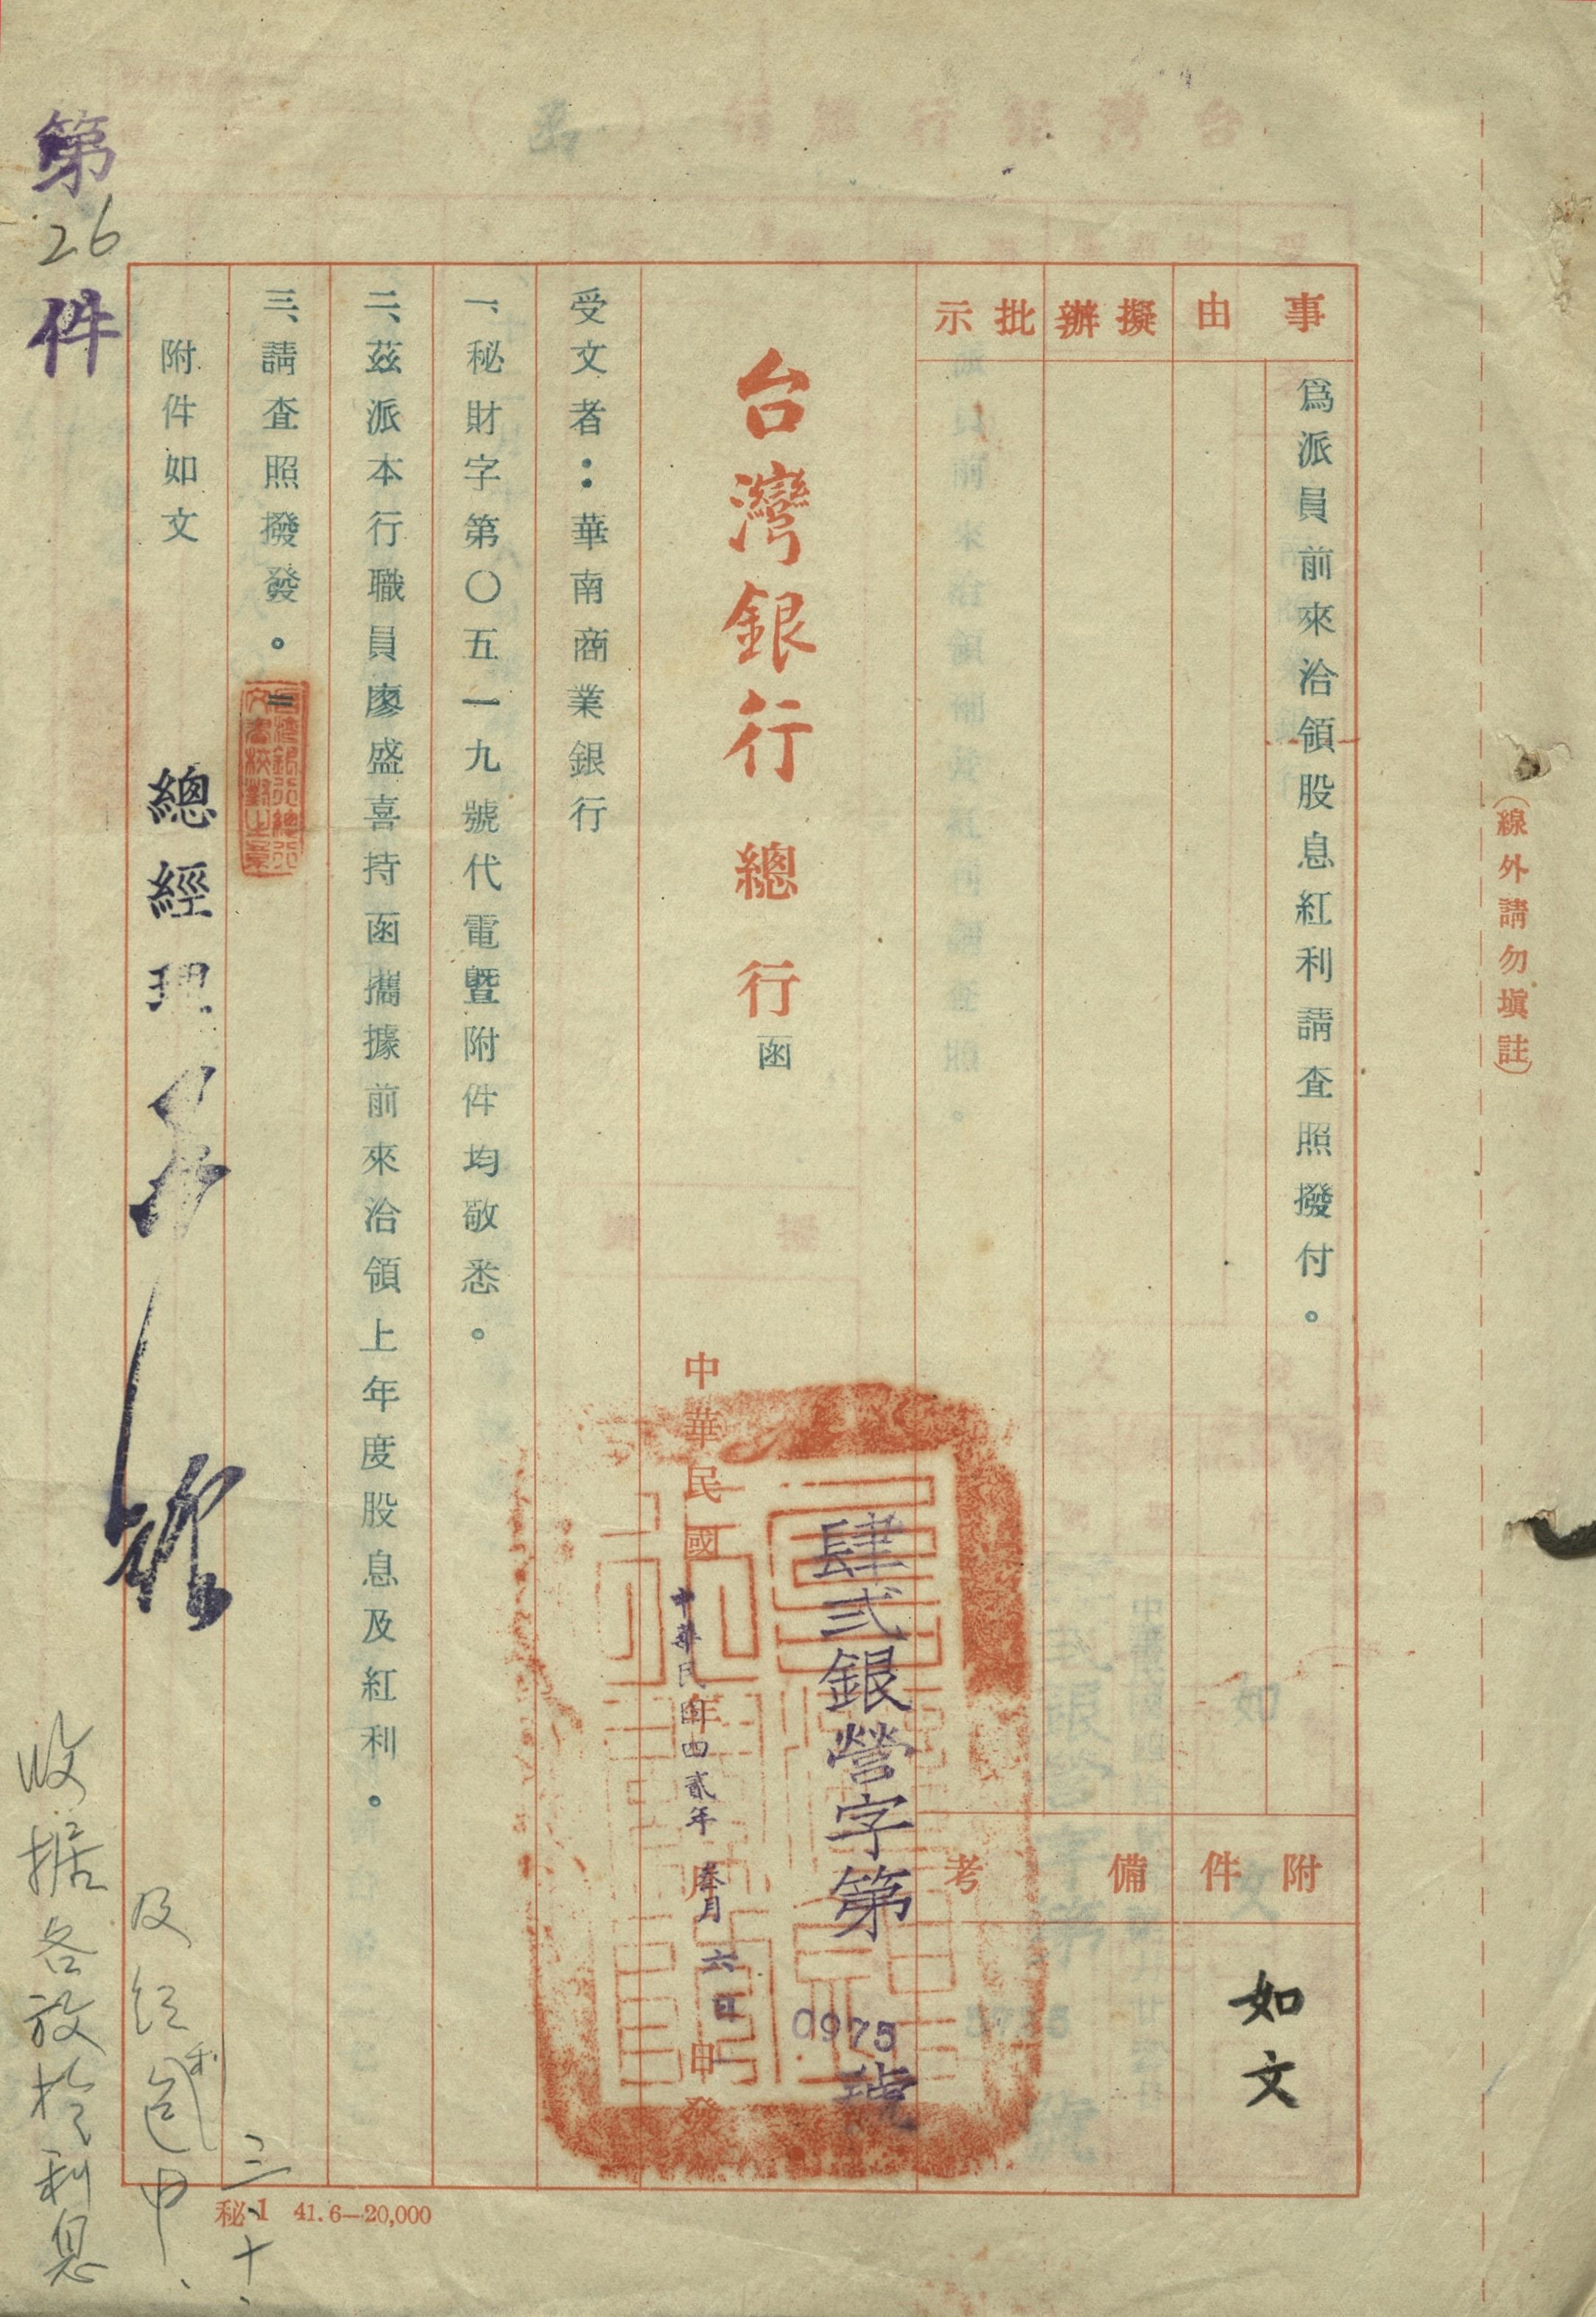 (線外請勿塡註)
事由
爲派員前來洽領股息紅利請查照撥付。
擬辦
批示
附件
如文
備考
台灣銀行總行函
肆弍銀營字第0975號
中華民國 年 月 日 發
中華民國四貳年叁月六日
受文者：華南商業銀行
一、秘財字第〇五一九號代電暨附件均敬悉。
二、茲派本行職員廖盛喜持函攜據前來洽領上年度股息及紅利。
三、請查照撥發。
附件如文
總經理
第26件
收据各放於利息
及红利
三、十、
秘1 41.6—20,000